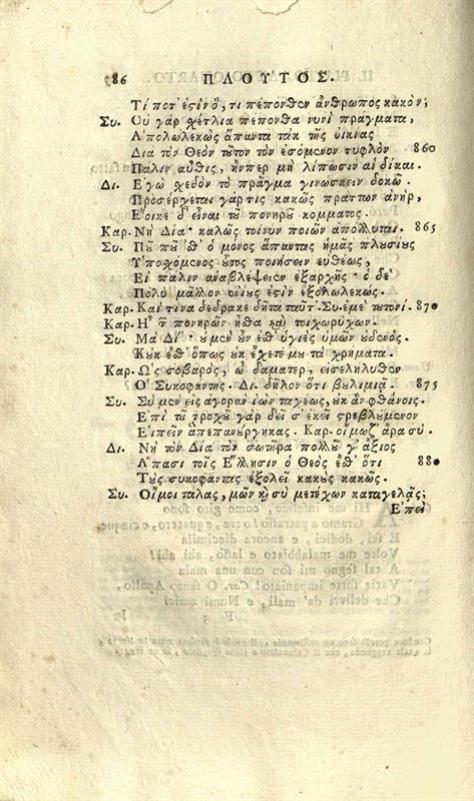 86 ΠΛΟΥΤΟΣ.
Τί ποτ' ἐστὶν ὅ, τι πέπονθεν ἄνθρωπος κακὸν;
Συ. Οὐ γὰρ χέτλια πέπονθα νυνὶ πράγματα,
Α᾿πολωλεκὼς ἅπαντα τἀκ τῆς οἰκίας
Δια τὸν Θεὸν τοῦτον τὸν ἐσόμενον τυφλὸν 860
Παλιν αὖθις, ἤνπερ μὴ λίπωσιν αἱ δίκαι.
Δι. Εγὼ χεδὸν τὸ πρᾶγμα γινώσκειν δοκῶ.
Προσέρχεται γάρ τις κακῶς πράττων ἀνὴρ,
Εοικε δ' εἶναι τοῦ πονηροῦ κομματος.
Καρ. Νὴ Δία· καλῶς τοίνυν ποιῶν ἀπόλλυται. 865
Συ. Ποῦ ποῦ 'θ' ὁ μόνος ἅπαντας ἡμᾶς πλουσίους
Υ᾿ποχόμενος οὗτος ποιήσειν εὐθέως,
Εἰ πάλιν ἀναβλέψειεν ἐξαρχῆς· ὁ δὲ
Πολὺ μᾶλλον ἐνίους ἐστὶν ἐξολωλεκώς.
Καρ. Καὶ τίνα δέδρακε δῆτα ταῦτ'. Συ. ἐμὲ τουτονί. 870
Καρ. Η῏ τ πονηρῶν ἦθα καὶ τοιχωρύχων.
Συ. Μὰ Δί'· οὐ μὲν οὖν ἐθ' ὑγιὲς ὑμῶν οὐδενός.
Κοὐκ ἔθ' ὅπως οὐκ ἔχετέ μου τὰ χρήματα.
Καρ. Ω῾ς σοβαρὸς, ὦ δάματερ, εἰσελήλυθεν
Ο῾ Συκοφαντης. Δι. δῆλον ὅτι βουλιμιᾷ. 875
Συ. Σὺ μὲν εἰς ἀγορὰν ἰὼν ταχέως, οὐκ ἂν φθάνοις.
Ε᾿πὶ τοῦ τροχοῦ γὰρ δεῖ σ' ἐκεῖ στρεβλούμενον
Εἰπεῖν ἃ πεπανούργηκας. Καρ. οἴμωζ' ἄρα σύ.
Δι. Νὴ τὸν Δία τὸν σωτῆρα πολλοῦ γ' ἄξιος
Α῞πασι τοῖς Ε῞λλησιν ὁ Θεὸς ἔθ' ὅτι 880
Τοὺς συκοφάντας ἐξολεῖ κακοὺς κακῶς.
Συ. Οἴμοι τάλας, μῶν καὶ σὺ μετέχων καταγελᾷς;
Ε᾿πεὶ